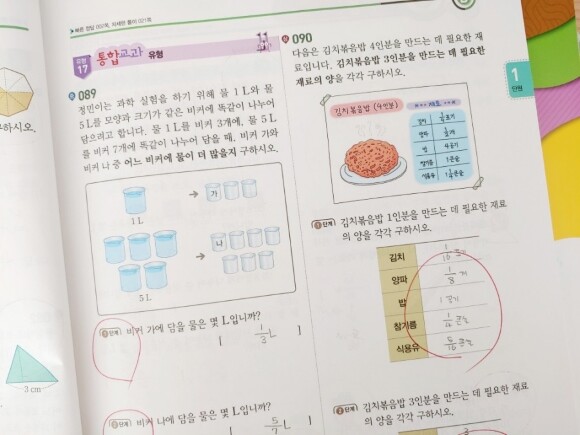 빠른 정답 002쪽, 자세한 풀이 021쪽
유형 17 통합교과 유형
089
정민이는 과학 실험을 하기 위해 물 1 L와 물
5 L를 모양과 크기가 같은 비커에 똑같이 나누어
담으려고 합니다. 물 1 L를 비커 3개에, 물 5 L
를 비커 7개에 똑같이 나누어 담을 때, 비커 가와
비커 나 중 어느 비커에 물이 더 많을지 구하시오.
가
1 L
나
5 L
1단계 비커 가에 담을 물은 몇 L입니까?
1/3 L
2단계 비커 나에 담을 물은 몇 L입니까?
5/7 L
구하시오.
3 cm
090
다음은 김치볶음밥 4인분을 만드는 데 필요한 재
료입니다. 김치볶음밥 3인분을 만드는 데 필요한
재료의 양을 각각 구하시오.
김치볶음밥 (4인분)
재료
김치
양파
밥 4공기
참기름 1큰술
식용유
1단계 김치볶음밥 1인분을 만드는 데 필요한 재료
의 양을 각각 구하시오.
김치
양파 1/8 개
밥 1공기
참기름 1/4 큰술
식용유 5/16 큰술
2단계 김치볶음밥 3인분을 만드는 데 필요한 재료
의 양을 각각 구하시오.
1
단원